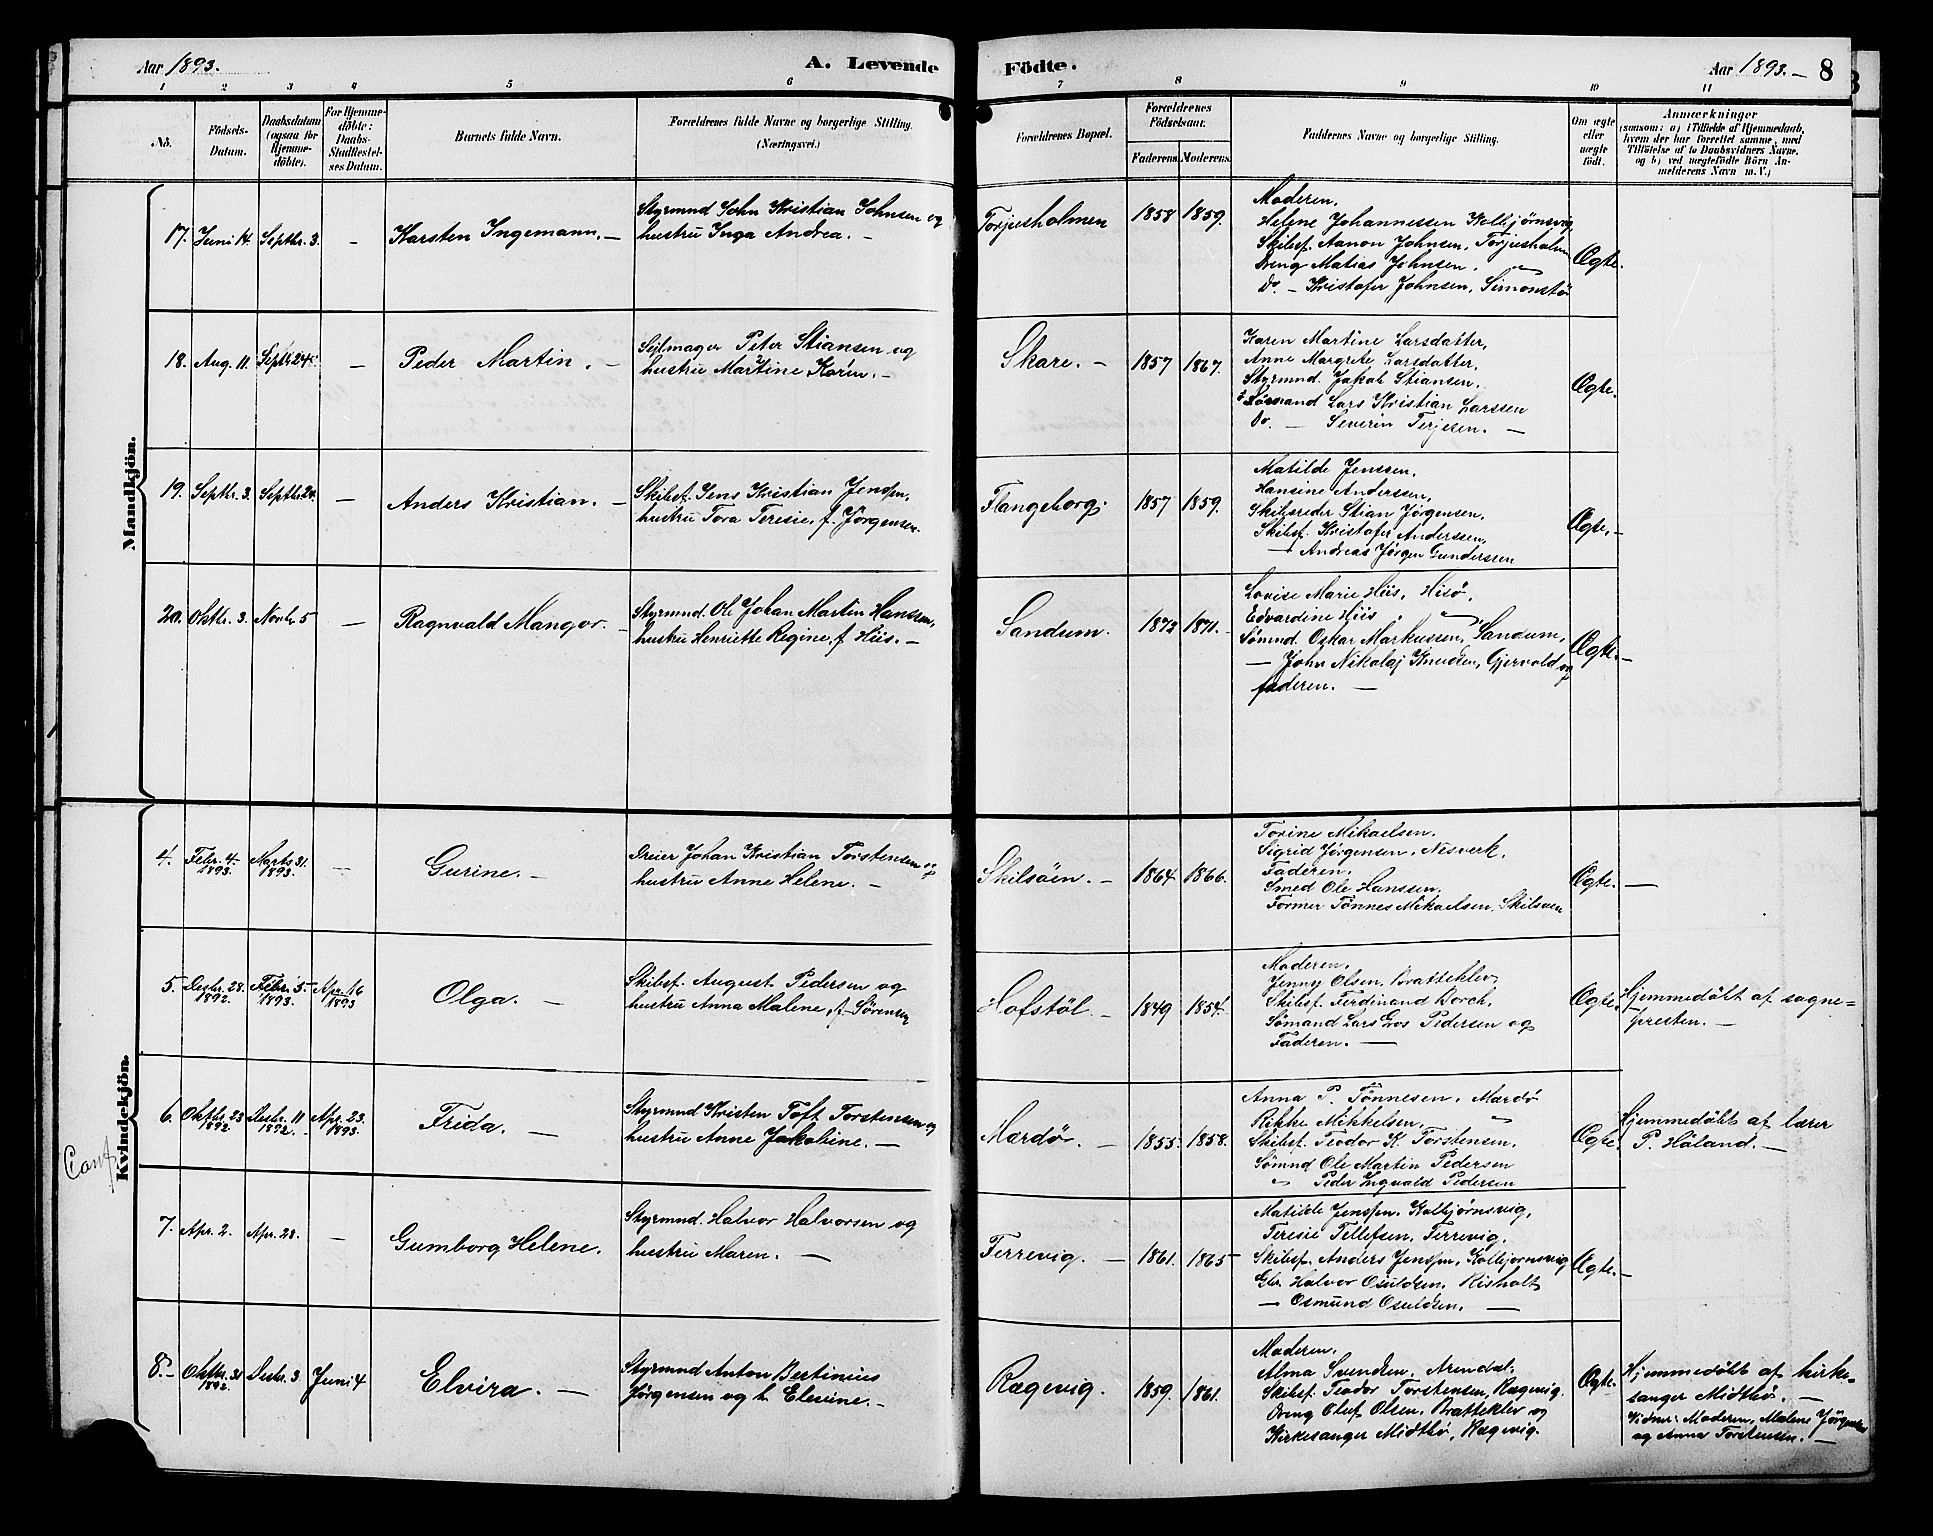 Aar 1893. A. Levende Födte. Aar 1893. — 8
1 2 3 4 5 6 7 8 9 10 11
No.
Födsels-
Datum.
Daabsdatum
(ogsaa for
Hjemme-
döbte).
For Hjemme-
döbte:
Daabs-
Stadfæstel-
ses Datum.
Barnets fulde Navn.
Forældrenes fulde Navne og borgerlige Stilling.
(Næringsvei.)
Forældrenes Bopæl.
Forældrenes
Födselsaar.
Faderens. Moderens.
Faddernes Navne og borgerlige Stilling.
Om ægte
eller
uægte
födt.
Anmærkninger
(saasom: a) i Tilfælde af Hjemmedaab,
hvem der har forrettet samme, med
Tilföielse af to Daabsvidners Navne,
og b) ved uægtefödte Börn An-
melderens Navn m. V.)
Mandkjön.
17. Juni 14. Septbr. 3. — Karsten Ingemann. —
Styrmnd John Kristian Johnsen og
hustru Inga Andrea. —
Torjusholmen 1858 1859.
Moderen.
Helene Johannessen Kolbjørnsvig
Skibsf. Aanon Johnsen, Torjusholm
Dreng Matias Johnsen. "
Do. — Kristofer Johnsen, Simonstø
Ægte.
18. Aug. 11. Septbr. 24. — Peder Martin. —
Sejlmager Peter Stiansen og
hustru Martine Karen. —
Skare. — 1857 1867.
Karen Martine Larsdatter,
Anne Margrete Larsdatter,
Styrmnd. Jakob Stiansen.
Sømand Lars Kristian Larssen
Do. — Severin Terjesen. —
Ægte.
19. Septbr. 3. Septbr. 24. — Anders Kristian. —
Skibsf. Jens Kristian Jenssen,
hustru Tora Teresie, f. Jørgensen.
Flangeborg. 1857 1859.
Matilde Jenssen.
Hansine Anderssen,
Skibsreder Stian Jørgensen,
Skibsf. Kristofer Anderssen,
— Andreas Jørgen Gunderssen
Ægte. —
20. Oktbr. 3. Novbr. 5 — Ragnvald Mangor. —
Styrmnd. Ole Johan Martin Hanssen,
hustru Henriette Regine, f. Hiis. —
Sandum. 1872 1871. —
Lovise Marie Hiis, Hisø,
Edvardine Hiis. "
Sømnd. Oskar Markussen, Sandum,
— John Nikolaj Knudsen, Gjervold og
faderen. —
Ægte. —
Kvindekjön.
4. Febr. 4. 1893. Marts 31. 1893. — Gurine. —
Dreier Johan Kristian Torstensen og
hustru Anne Helene. —
Skilsöen. — 1864 1866.
Torine Mikaelsen.
Sigrid Jørgensen. Nesverk.
Faderen.
Smed Ole Hanssen.
Former Tønnes Mikaelsen. Skilsøen
Ægte. —
5. Desbr. 28. 1892. Febr. 5. 1893. Apr. 16 1893 Olga. —
Skibsf. August Pedersen og
hustru Anna Malene, f. Sörensen
Hofstöl. — 1849 1854.
Moderen.
Jenny Olsen. Bratteklev
Skibsf. Ferdinand Borch.
Sømand Lars Pedersen og
Faderen. —
Ægte. —
Hjemmedöbt af sogne=
presten. —
6. Oktbr. 23 1892 Desbr. 11 1892. Apr. 23. 1893. Frida. —
Styrmnd Kristen Toft Torstensen og
hustru Anne Jakobine. —
Mærdö. — 1855. 1858.
Anna P. Tønnesen. Mærdö
Rikke Mikkelsen. "
Skibsf. Teodor K. Torstensen.
Sømnd Ole Martin Pedersen
" Peder Ingvald Pedersen
Ægte.
Hjemmedöbt af lærer
P. Håland. —
Conf
7. Apr. 2. Apr. 23. — Gumborg Helene.
Styrmnd. Halvor Halvorsen og
hustru Maren. —
Terrevig. — 1861. 1865 —
Matilde Jenssen. Kolbjørnsvig,
Teresie Tellefsen, Terrevig.
Skibsf. Anders Jenssen, Kolbjornsvig
Gbr. Halvor Osuldsen. Risholt
— Osmund Osuldsen. —
Ægte. —
8. — Oktbr. 31 1892. Desbr. 3 Juni 4 Elvira. —
Styrmnd Anton Bertinius
Jörgensen og h. Elevine. —
Rægevig. 1859. 1861.
Moderen.
Alma Svendsen. Arendal.
Skibsf. Teodor Torstensen, Rægevig.
Dreng Oluf Olsen. Bratteklev og
Kirkesanger Midtbø, Rægevig.
Ægte.
Hjemmedöbt af kirke-
sanger Midtbø. —
Vidner: Moderen, Malene Jørgensen
og Anna Torstensen. —